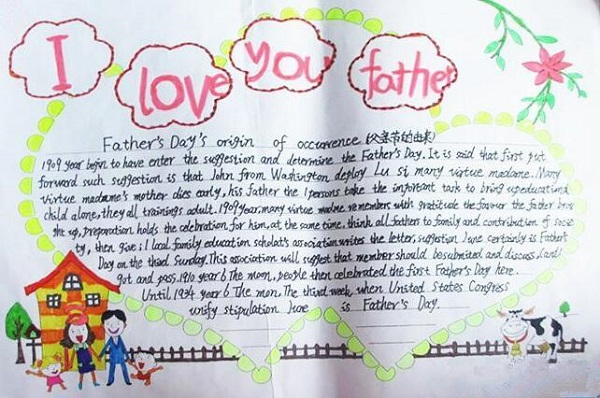 I love you father
Father's Day's origin of occurrence (父亲节的由来)
1909 year begin to have enter the suggestion and determine the Father's Day. It is said that first put
forward such suggestion is that John from Washington deploy Lu si many virtue madame. Many
virtue madame's mother dies early, his father the 1 persons take the important task to bring up educational
child alone, they all trainings adult. 1909 year, many virtue madame remembers with gratitude the favour the father
she up, preparation holds the celebration for him, at the same time, think all fathers to family and contribution of socie
ty, then give; 1 local family education scholar's association writes the letter, suggestion June certainly is Father's
Day on the third Sunday. This association will suggest that member should be submitted and discuss, (and
got and pass. 1910 year 6 The mon, people then celebrated the first Father's Day here.
Until 1934 year 6 The mon. The third week when United States Congress
unify stipulation June is Father's Day.